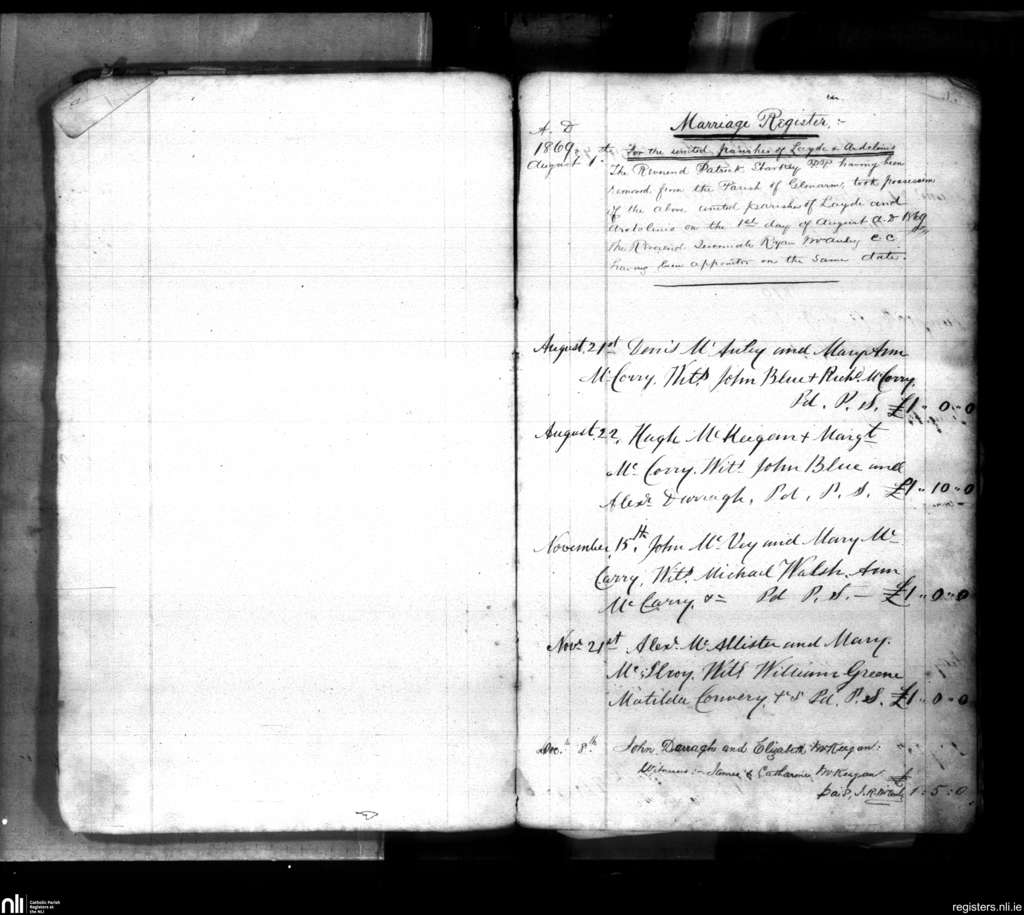 Marriage Register,:-
A. D
1869.
August 1st
For the united parishes of Layde & Ardclinis
The Reverend Patrick Starkey P.P. having been
removed from the Parish of Glenarm, took possession
of the above united parishes of Layde and
Ardclinis on the 1st day of August A.D 1869
the Reverend Jeremiah Ryan McAuley C.C.
having been appointed on the same date.
August, 21st Denis Mc Auley and Mary Ann
Mc Corry. Wits John Blue & Richd McCorry.
Pd. P. S. £1 " 0 " 0
August 22, Hugh Mc Keegan & Margt
Mc Corry. Wits John Blue and
Alexr Darragh, Pd, P. S. £1 " 10 " 0
November, 15th, John Mc Vey and Mary Mc
Carry, Wits Michael Walsh Ann
Mc Carry, &= Pd P. S. — £1 " 0 " 0
Novr 21st Alexr Mc Allister and Mary
Mc Ilroy, Wits William Greene
Matilda Convery, &c Pd. P. S. £1 " 0 " 0
Dec. 8th John Darragh and Elizabeth McKeegan:
Witness:- James & Catharine McKeegan
Paid, J. R. McAuley £1 : 5 : 0
nli
Catholic Parish
Registers at
the NLI
registers.nli.ie